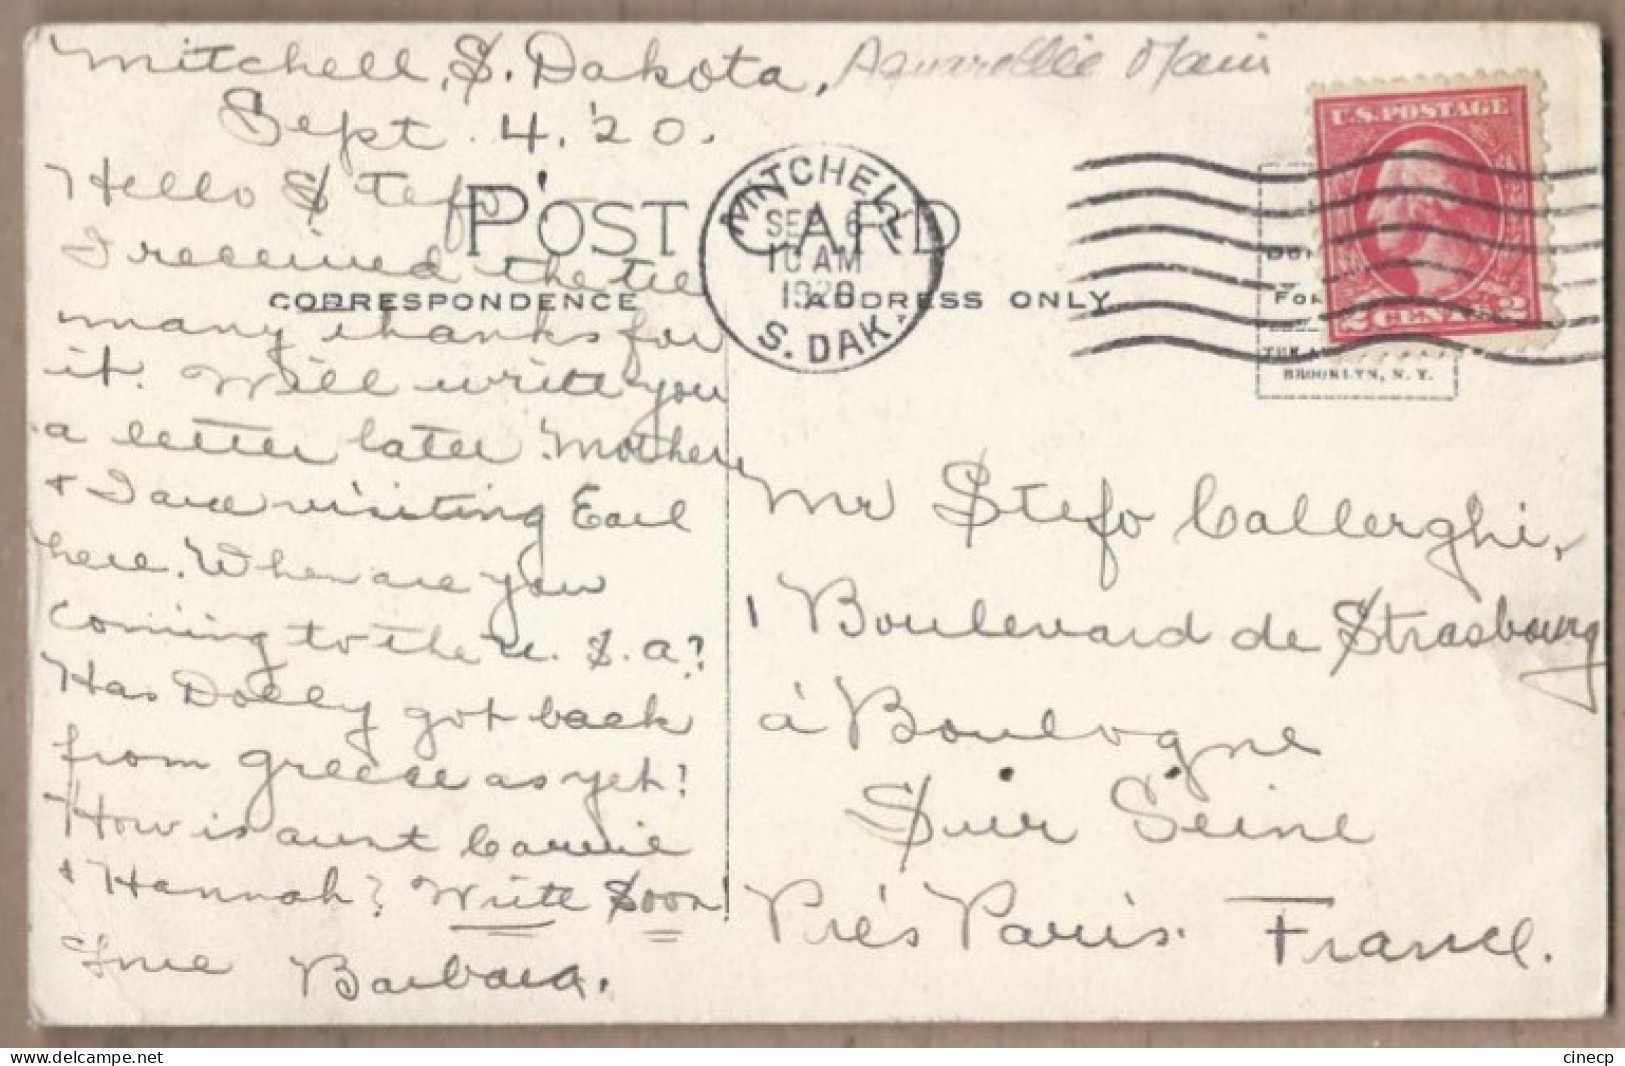 Mitchell, S. Dakota,
Sept. 4, '20.
Hello Stefo
I received the tie
many thanks for
it. Will write you
a letter later. Mother
+ I are visiting Earl
here. When are you
coming to the U. S. a?
Has Dolly got back
from greece as yet?
How is aunt Carrie
+ Hannah? Write Soon!
Barbara.
POST CARD
CORRESPONDENCE
ADDRESS ONLY
MITCHELL
SEP 6
10 AM
1920
S. DAK.
U.S. POSTAGE
2 CENTS 2
BROOKLYN, N. Y.
Mr Stefo Callerghi,
1 Boulevard de Strasbourg
à Boulogne
Sur Seine
Prés Paris. France.
www.delcampe.net
cinecp